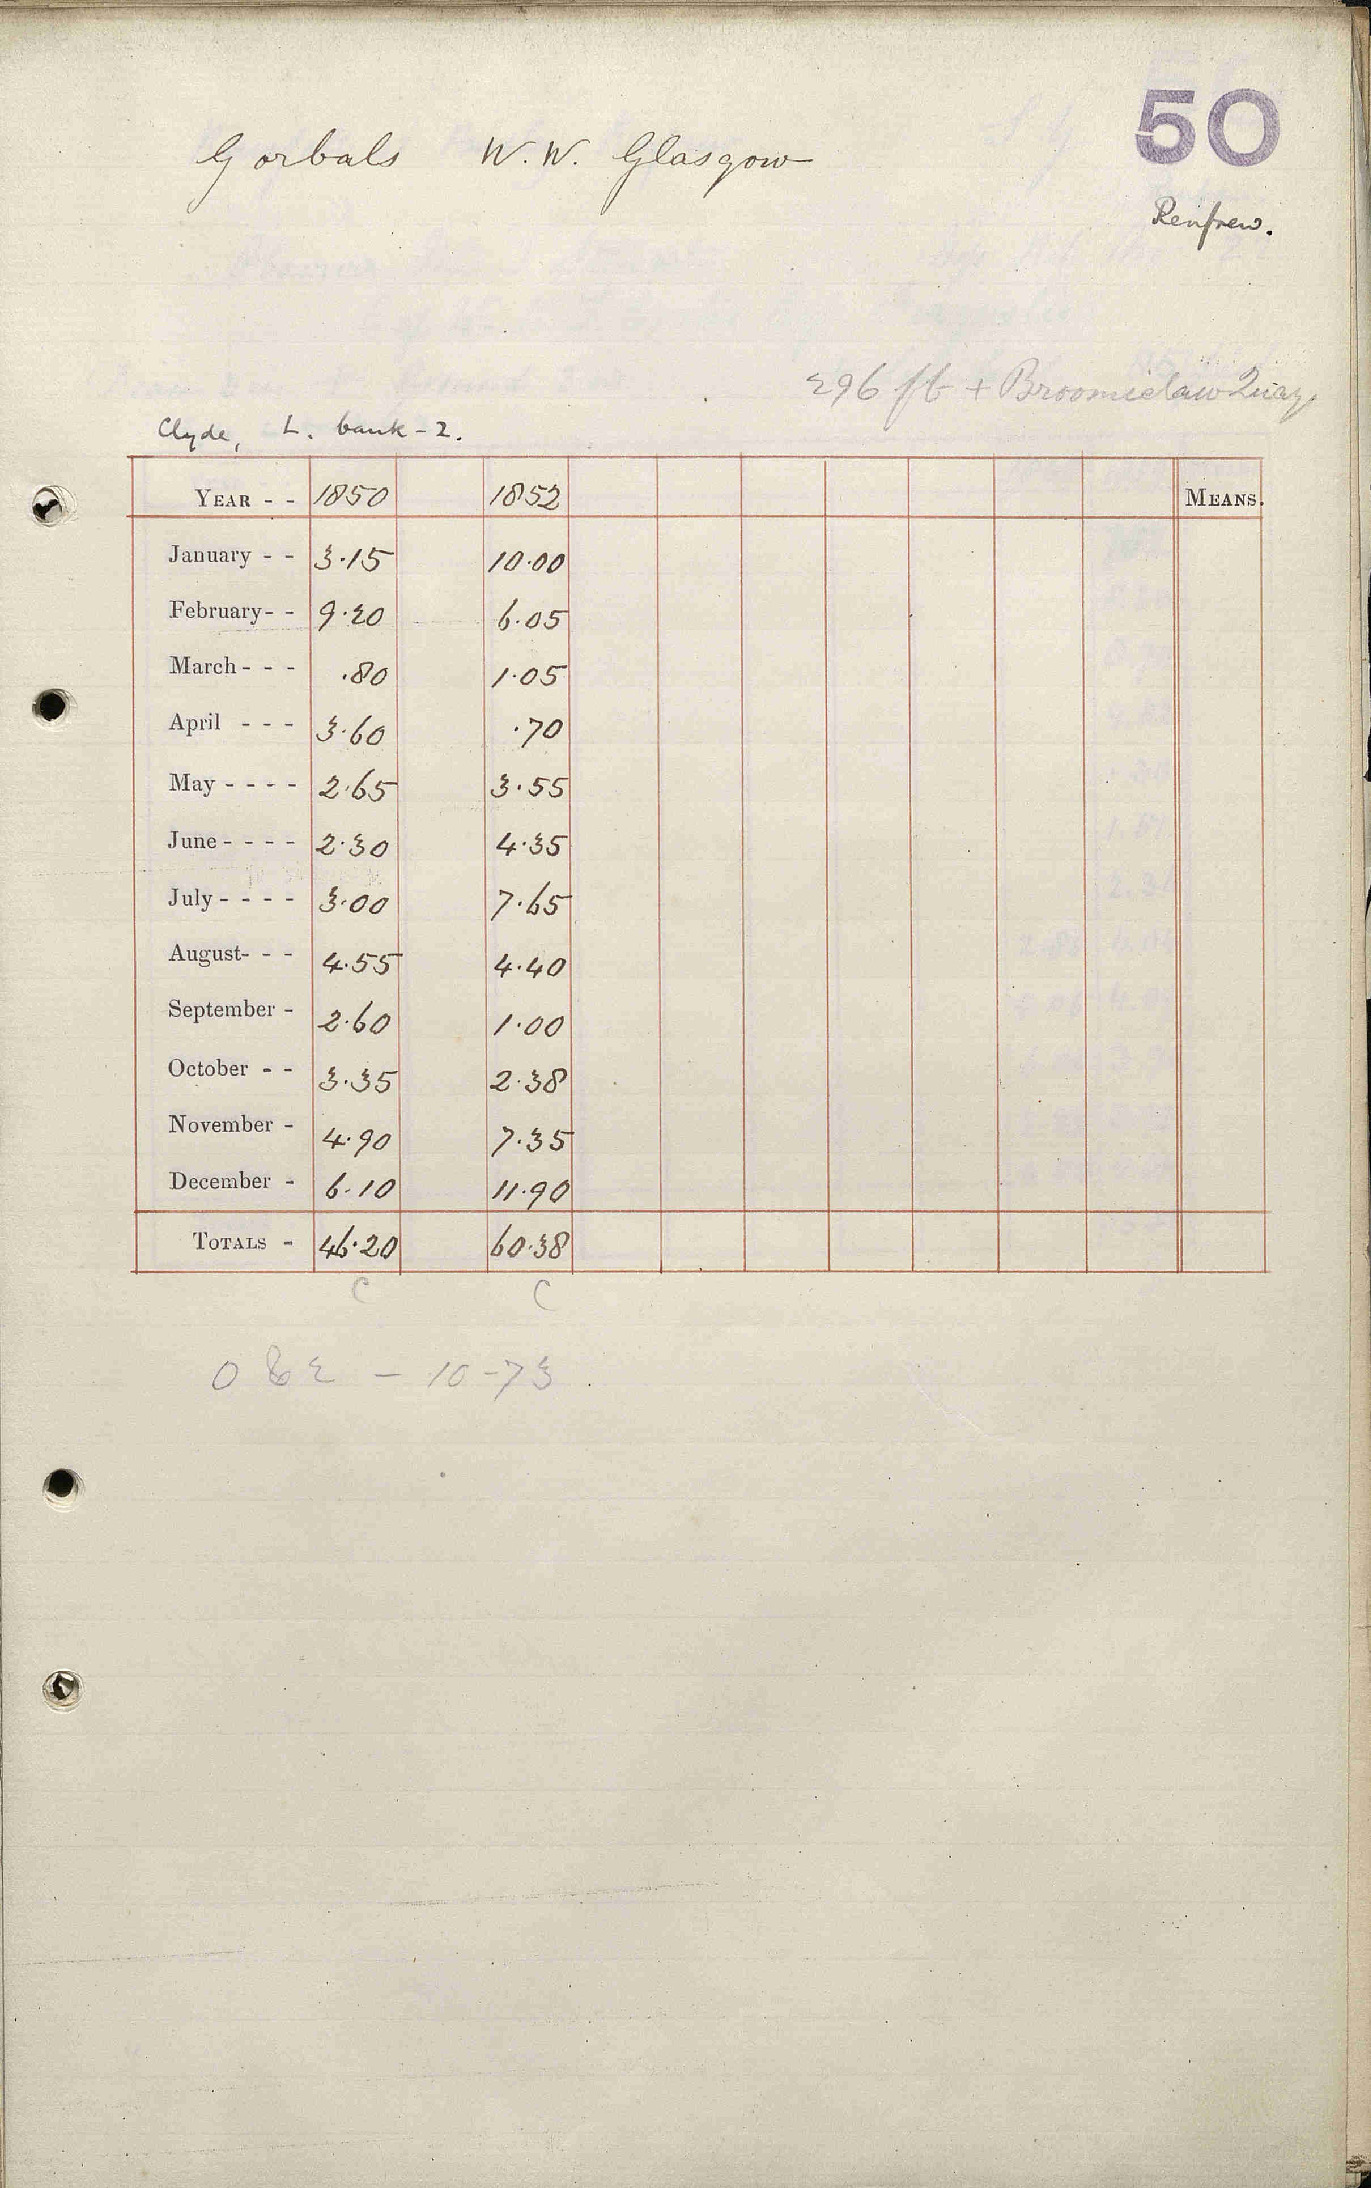 50
Gorbals W.W. Glasgow
Renfrew.
296 ft + Broomielaw Quay.
Clyde, L. bank - 2.
YEAR - - 1850 1852 MEANS.
January - - 3.15 10.00
February - - 9.20 6.05
March - - - .80 1.05
April - - - 3.60 .70
May - - - - 2.65 3.55
June - - - - 2.30 4.35
July - - - - 3.00 7.65
August - - - 4.55 4.40
September - 2.60 1.00
October - - 3.35 2.38
November - 4.90 7.35
December - 6.10 11.90
TOTALS - 46.20 60.38
C C
- 10-73